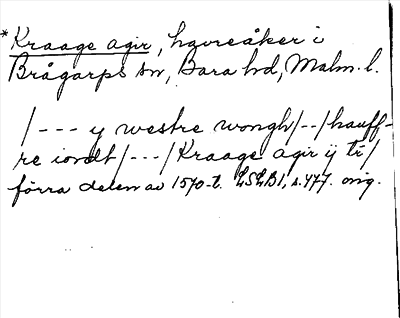 *Kraage agir, havreåker i
Brågarps sn, Bara hd, Malm. l.
/--- y westre wongh/--/hauff-
re iordt/---/Kraage agir ij tr/
förra delen av 1570-t. LSLB1, s.477. orig.